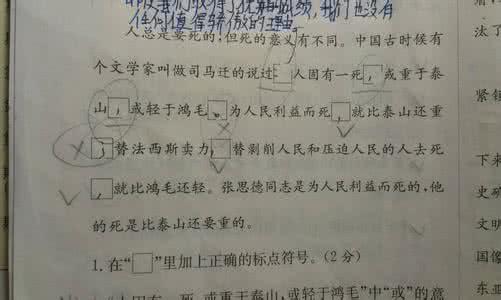 我们取得了优异的成绩，我们也没有
任何值得骄傲的理由。
人总是要死的，但死的意义有不同。中国古时候有
个文学家叫做司马迁的说过：人固有一死，或重于泰
山，或轻于鸿毛。为人民利益而死，就比泰山还重
；替法西斯卖力，替剥削人民和压迫人民的人去死
，就比鸿毛还轻。张思德同志是为人民利益而死的，他
的死是比泰山还要重的。
1.在“□”里加上正确的标点符号。(2分)
人固有一死，或重于泰山，或轻于鸿毛”中“或”的意
法了
下来
文明
国像
东亚